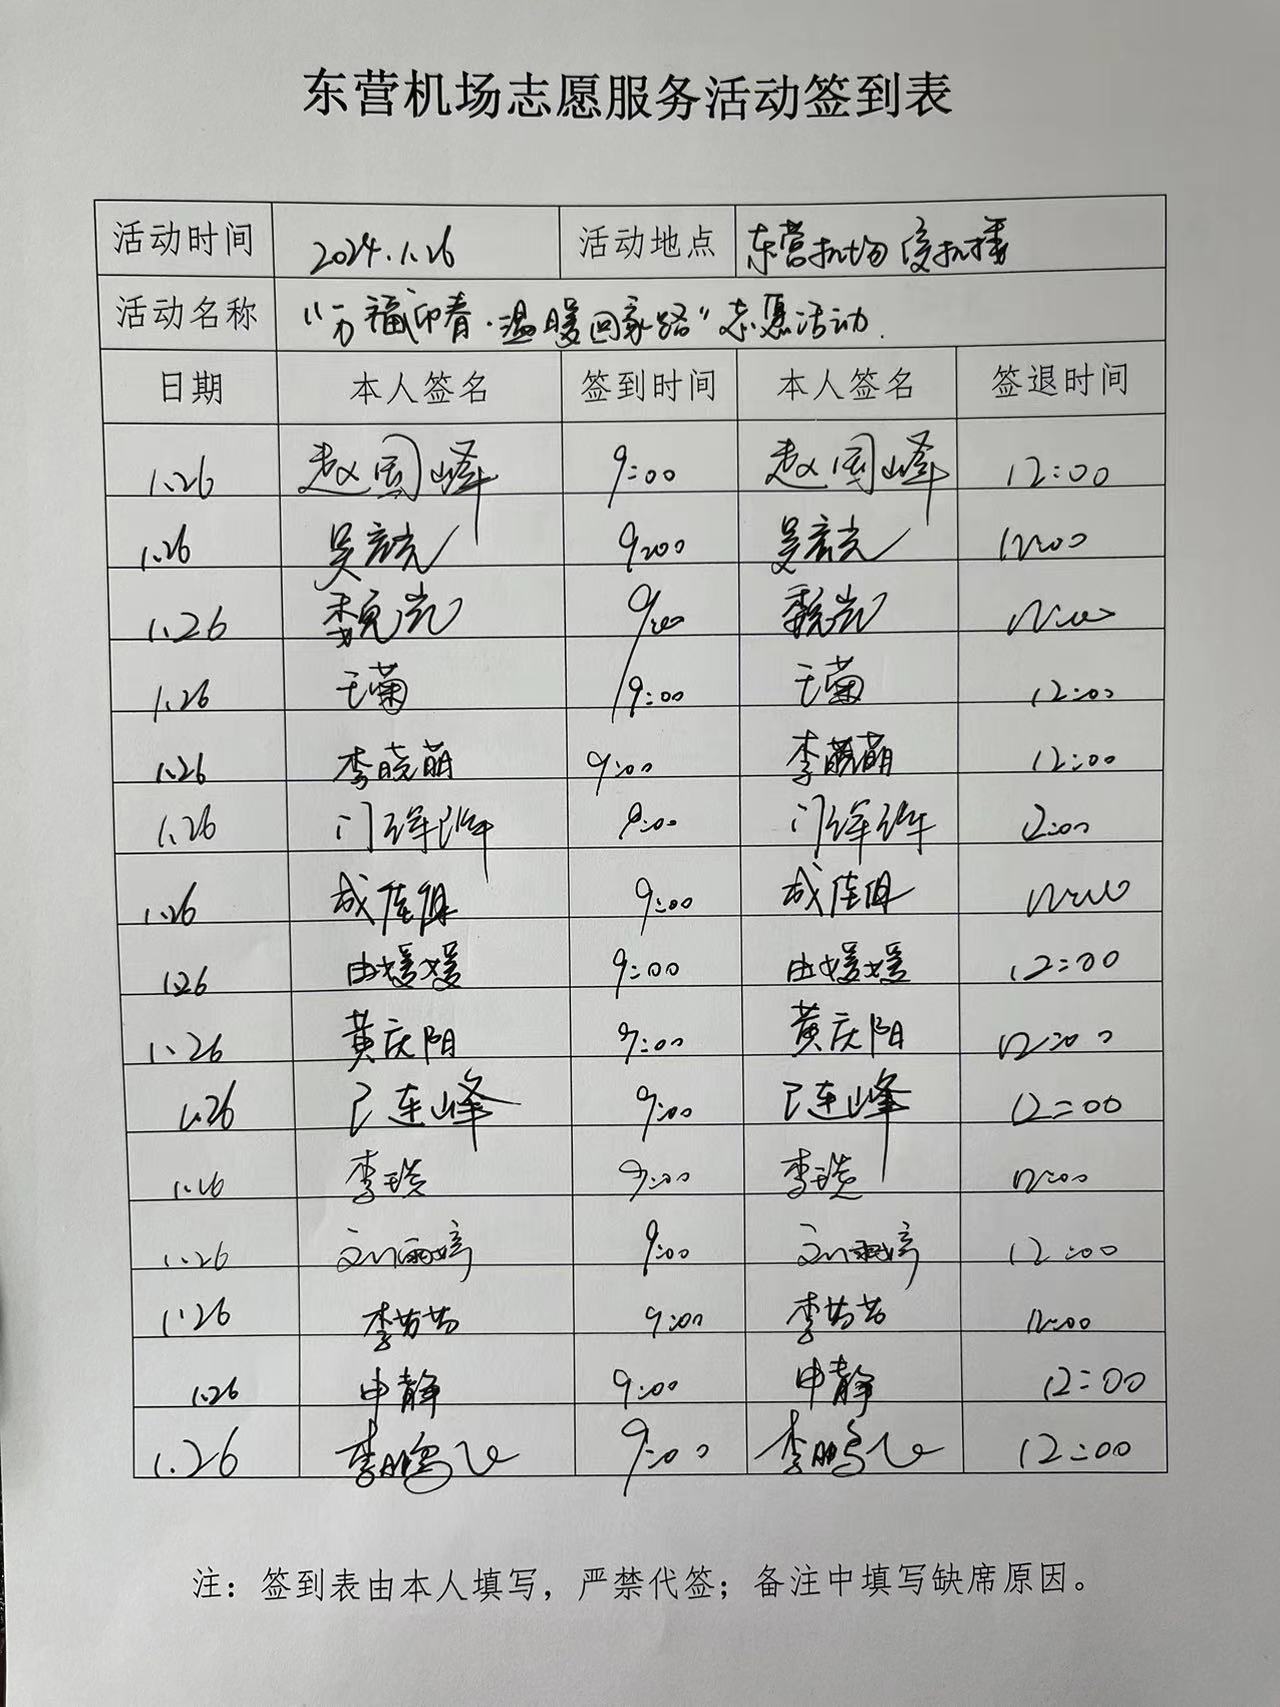 东营机场志愿服务活动签到表
活动时间 2024.1.26 活动地点 东营机场候机楼
活动名称 “万福迎春·温暖回家路”志愿活动.
日期 本人签名 签到时间 本人签名 签退时间
1.26 赵国峰 9:00 赵国峰 12:00
1.26 9:00 12:00
1.26 魏岚 9:00 魏岚 12:00
1.26 王菊 9:00 王菊 12:00
1.26 李晓萌 9:00 李晓萌 12:00
1.26 9:00 2:00
1.26 成佳俱 9:00 成佳俱 12:00
1.26 由媛媛 9:00 由媛媛 12:00
1.26 黄庆阳 9:00 黄庆阳 12:00
1.26 连峰 9:00 连峰 12:00
1.26 李 9:00 李 12:00
1.26 刘雨婷 9:00 刘雨婷 12:00
1.26 李芳芳 9:00 李芳芳 12:00
1.26 申静 9:00 申静 12:00
1.26 李鹏飞 9:00 李鹏飞 12:00
注：签到表由本人填写，严禁代签；备注中填写缺席原因。